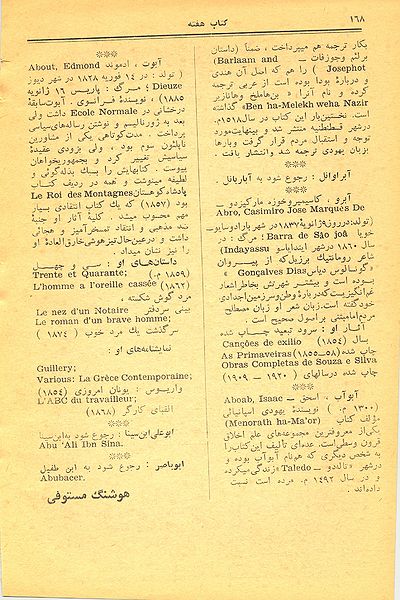 ۱۶۸
کتاب هفته
بکار ترجمه هم میپرداخت ، ضمناً (داستان
برلئم و جوزفات — Barlaam and
Josephot ) را هم که اصل آن هندی
و دربارهٔ بودا بوده است از عربی ترجمه
کرده و نام آنرا « بن‌هاملخ وهانازیر
Ben ha-Melekh weha Nazir» گذاشته
است. نخستین‌بار این کتاب در سال ۱۵۱۸م.
درشهر قسطنطنیه منتشر شد و بینهایت مورد
توجه و استقبال مردم قرار گرفت وبارها
بزبان یهودی ترجمه شد وانتشار یافت .
***
آبراوانل . رجوع شود به آباربانل .
***
آبرو . کاسیمیروخوزه مارکیزدو —
Abro, Casimiro Jose Marques De
(تولد: درروز۹ ژانویهٔ۱۸۳۷ در شهر
خویا Barra de São joã ؛ مرگ : در
سال ۱۸۶۰ درشهر ایندایاسو Indayassu)
شاعر رومانتیك برزیل که از پیروان
« گونسالوس دیاس Gonçalves Dias »
بوده است و بیشتر شهرتش بخاطر اشعار
غم‌انگیزیست که دربارهٔ وطن و سرزمین اجدادی
خود گفته است. زبان شعر او زبان مصطلح
مردم امامبتنی بر اصول صحیح است .
آثار او : سرود تبعید چاپ شده
Canções de exilio (۱۸۵۴) بسال
As Primaveiras (۱۸۵۵—۵۸) چاپ شده
Obras Completas de Souza e Silva
چاپ شده درسالهای ۱۹۲۰ — ۱۹۰۹)
***
آبوآب ، اسحق — Aboab, Isaac
(۱۳۰۰ م . ) نویسندهٔ یهودی اسپانیائی
مؤلف کتاب (Menorath ha-Ma'or)
یکی از معروفترین مجموعه‌های علم اخلاق
قرون وسطی‌است. عده‌ای تألیف این‌کتاب را
به شخص دیگری که هم‌نام آبوآب بوده و
درشهر «تالدو — Taledo »زندگی میکرده
و در سال ۱۴۹۲ م. مرده است نسبت
داده‌اند .
***
آبوت ، ادموند About, Edmond
( تولد : در ۱۴ فوریه ۱۸۲۸ در شهر دیوز
Dieuze ؛ مرگ : پاریس ۱۶ ژانویه
۱۸۸۵) ، نویسندهٔ فرانسوی . آبوت‌سابقهٔ
درخشانی در Ecole Normale داشت ولی
بعد به ژورنالیسم و نوشتن رساله‌های‌سیاسی
پرداخت . مدت‌کوتاهی یکی از مشاورین
ناپلئون سوم بود ، ولی بزودی عقیدهٔ
سیاسیش تغییر کرد و بجمهوریخواهان
پیوست . کتابهایش را بسبك بذله‌گوئی و
لطیفه مینوشت و همه در ردیف کتاب
پادشاه کوهستان Le Roi des Montagnes
بود (۱۸۵۷) که یك کتاب انتقادی بسیار
مهم محسوب میشد . کلیهٔ آثار او جنبهٔ
ضد مذهبی و انتقاد تمسخرآمیز و هجائی
داشت و درعین‌حال تیزهوشی خارق‌العادهٔ او
را نیز نشان میداد .
داستان‌های او : سی و چهل
Trente et Quarante; (۱۸۵۹ م.)
L'homme a l'oreille cassée (۱۸۶۲)
مرد گوش شکسته .
Le nez d'un Notaire بینی سردفتر
Le roman d'un brave homme;
سرگذشت یك مرد خوب ( ۱۸۷۴ )
نمایشنامه‌های او :
Guillery;
Various: La Grèce Contemporaine;
واریوس : یونان امروزی (۱۸۵۴)
L'ABC du travailleur;
الفبای کارگر (۱۸۶۸)
***
ابوعلی‌ابن‌سینا : رجوع شود به‌ابن‌سینا
Abu 'Ali Ibn Sina.
***
ابوباصر : رجوع شود به ابن طفیل
Abubacer.
هوشنگ مستوفی